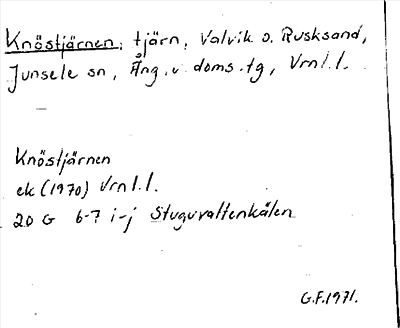 Knöstjärnen, tjärn, Valvik o. Rusksand,
Junsele sn, Ång. v. doms.tg, Vrnl.l.
Knöstjärnen
ek (1970) Vrnl.l.
20 G 6-7 i-j Stuguvattenkälen
G.F.1971.